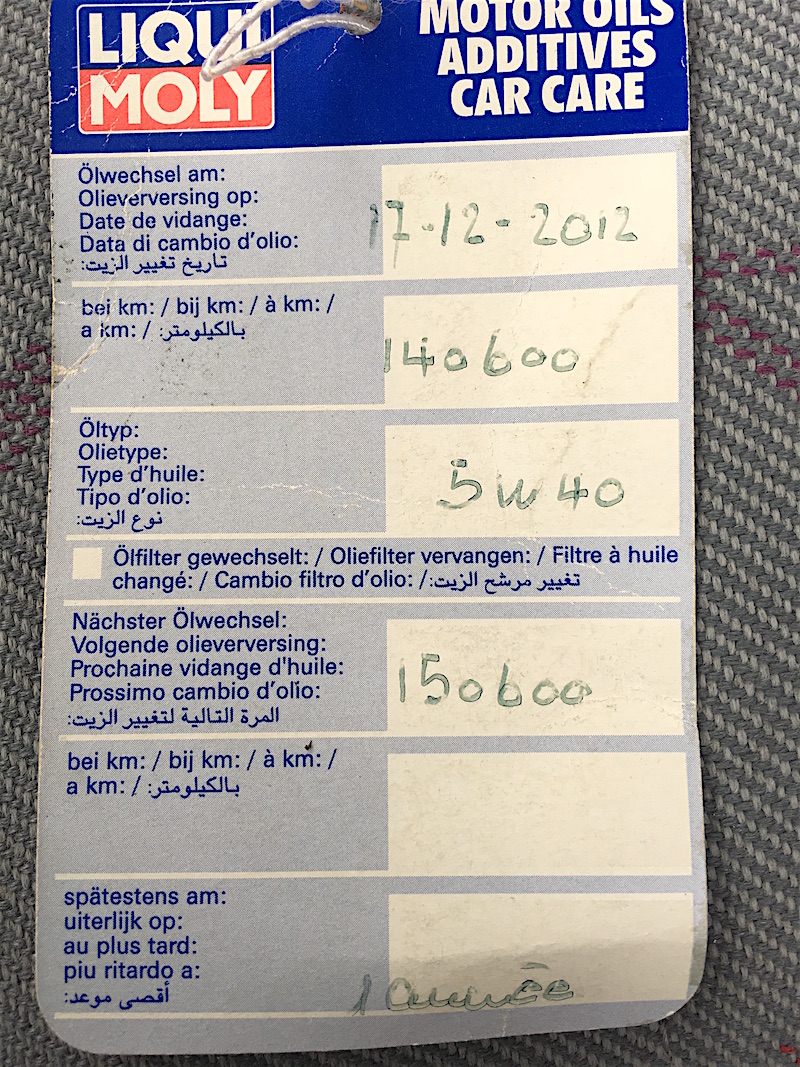 LIQUI
MOLY
MOTOR OILS
ADDITIVES
CAR CARE
Ölwechsel am:
Olieverversing op:
Date de vidange:
Data di cambio d'olio:
تاريخ تغيير الزيت:
17-12-2012
bei km: / bij km: / à km: /
a km: / بالكيلومتر:
140600
Öltyp:
Olietype:
Type d'huile:
Tipo d'olio:
نوع الزيت:
5W40
Ölfilter gewechselt: / Oliefilter vervangen: / Filtre à huile
changé: / Cambio filtro d'olio: / تغيير مرشح الزيت:
Nächster Ölwechsel:
Volgende olieverversing:
Prochaine vidange d'huile:
Prossimo cambio d'olio:
المرة التالية لتغيير الزيت:
150600
bei km: / bij km: / à km: /
a km: / بالكيلومتر:
spätestens am:
uiterlijk op:
au plus tard:
piu ritardo a:
أقصى موعد:
1 année